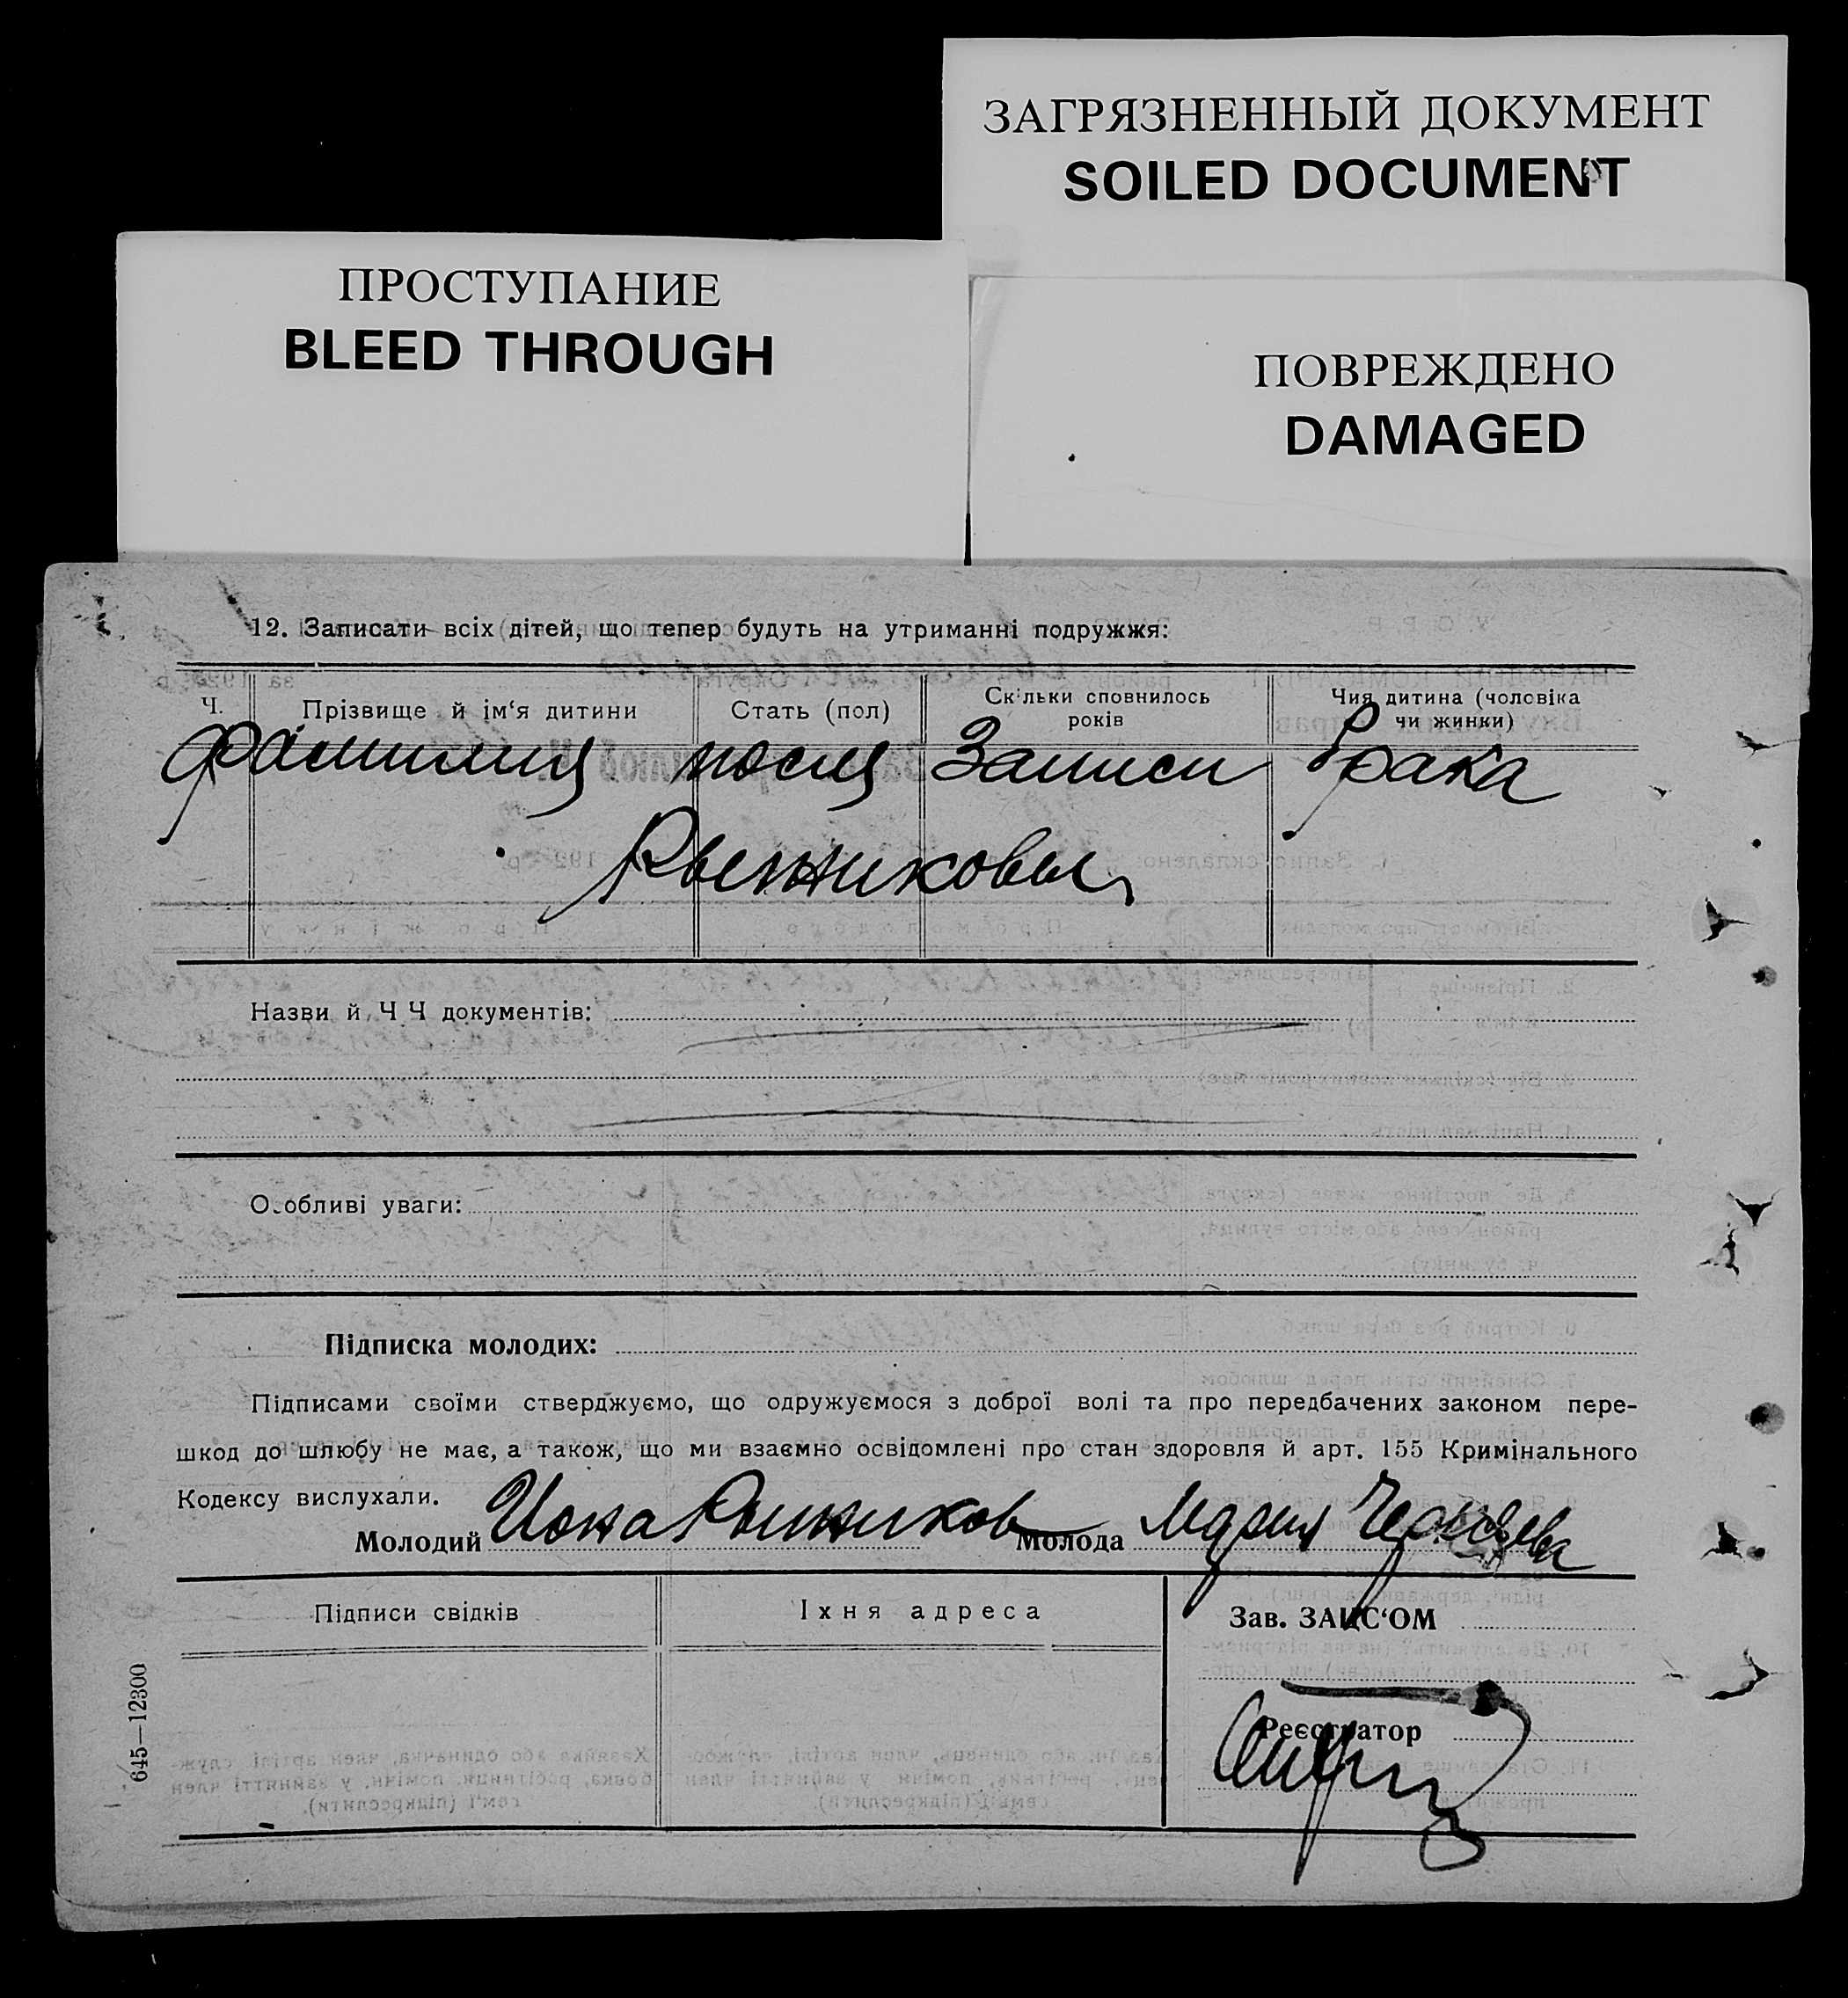 ЗАГРЯЗНЕННЫЙ ДОКУМЕНТ
SOILED DOCUMENT
ПРОСТУПАНИЕ
BLEED THROUGH
ПОВРЕЖДЕНО
DAMAGED
12. Записати всіх дітей, що тепер будуть на утриманні подружжя:
Ч.
Прізвище й ім‘я дитини
Стать (пол)
Скільки сповнилось
років
Чия дитина (чоловіка
чи жинки)
Фамилия после Записи брака
Назви й Ч Ч документів:
Особливі уваги:
Підписка молодих:
Підписами своїми стверджуємо, що одружуємося з доброї волі та про передбачених законом пере-
шкод до шлюбу не має, а також, що ми взаємно освідомлені про стан здоровля й арт. 155 Кримінального
Кодексу вислухали.
Молодий Иона Молода Мария
Підписи свідків
Їхня адреса
Зав. ЗАЦС‘ОМ
Реєстратор
645—12300